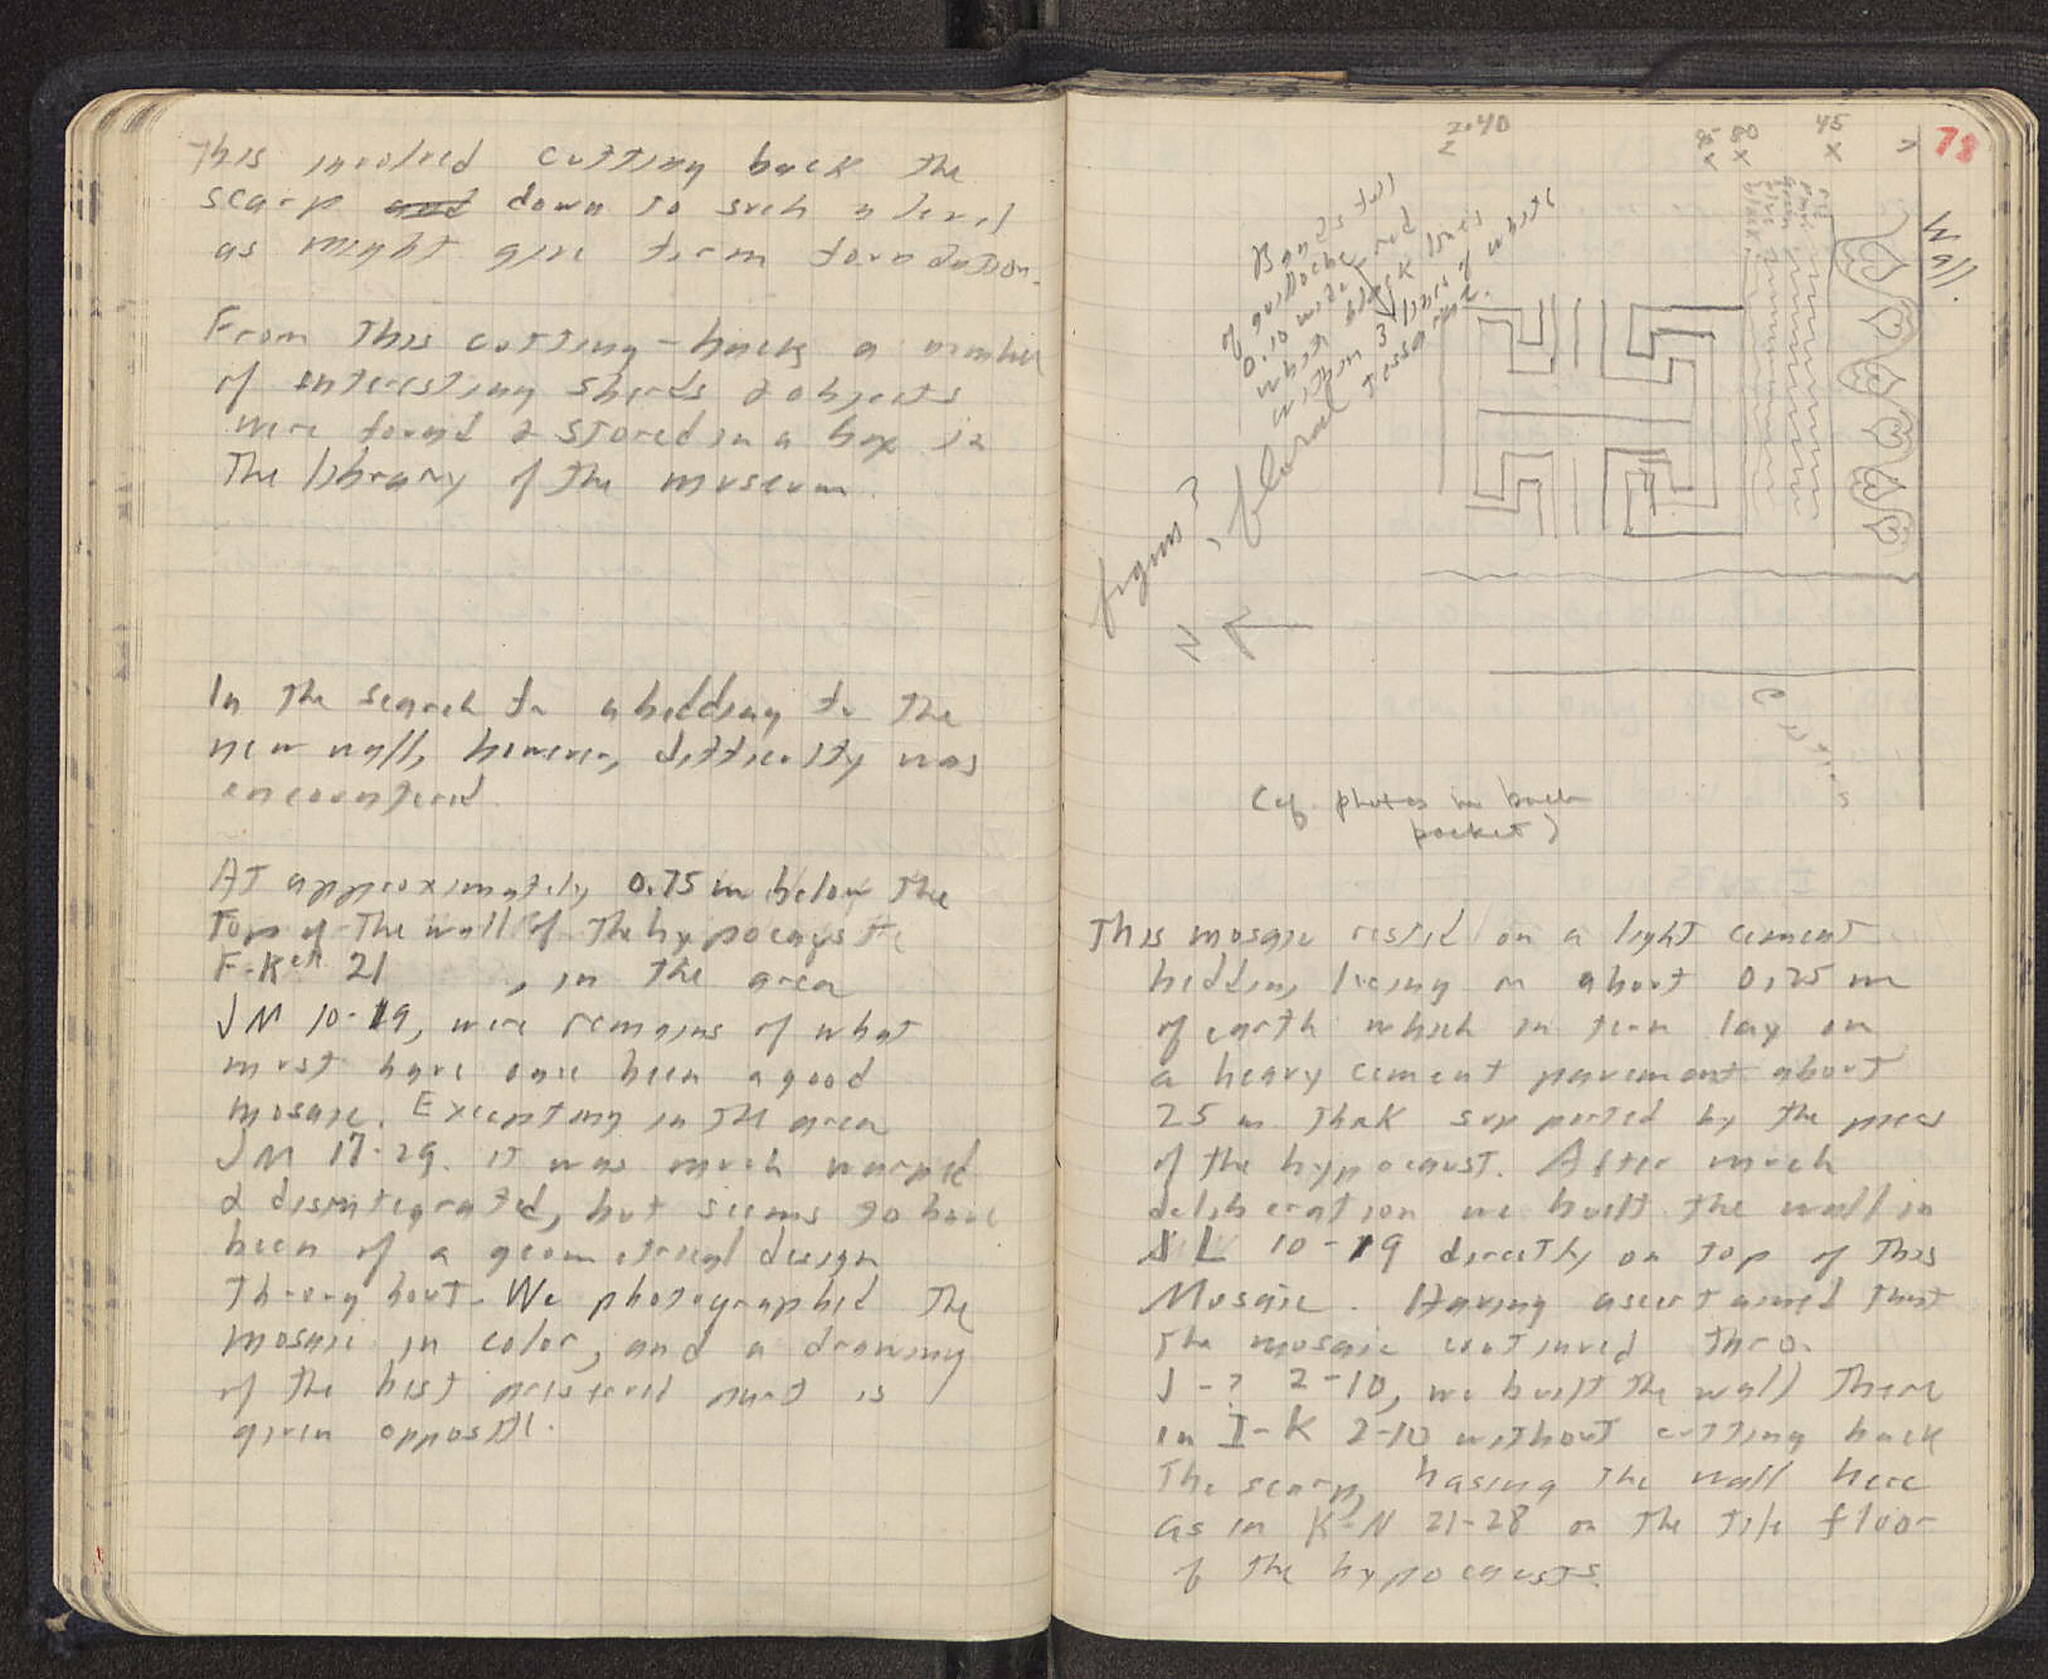 This involved cutting back the
scarp and down to such a level
as might give firm foundation.
From this cutting-back a number
of interesting sherds & objects
were found & stored in a box in
the library of the museum.
In the search for a bedding for the
new wall, however, difficulty was
encountered.
At approximately 0.75 m below the
top of the wall of the hypocauste
F-K 21 , in the area
JM 10-19, were remains of what
must have once been a good
mosaic. Excepting in the area
JM 17-29. it was much warped
& disintegrated, but seems to have
been of a geometrical design
throughout. We photographed the
mosaic in color, and a drawing
of the best preserved part is
given opposite.
78
2.40
80
45
Wall.
Bands full
of guilloche, red
0.10 wide
with black lines
within 3 lines of white
tesserae.
figures?, floral
N
(cf. photos in back
pocket)
This mosaic rested on a light cement
bedding lieing on about 0,25 m
of earth which in turn lay on
a heavy cement pavement about
25 m thick supported by the piers
of the hypocaust. After much
deliberation we built the wall in
L 10-19 directly on top of this
Mosaic. Having ascertained that
the mosaic continued thro.
J-? 2-10, we built the wall there
in I-K 2-10 without cutting back
the scarp, basing the wall here
as in K-N 21-28 on the tile floor
of the hypocausts.